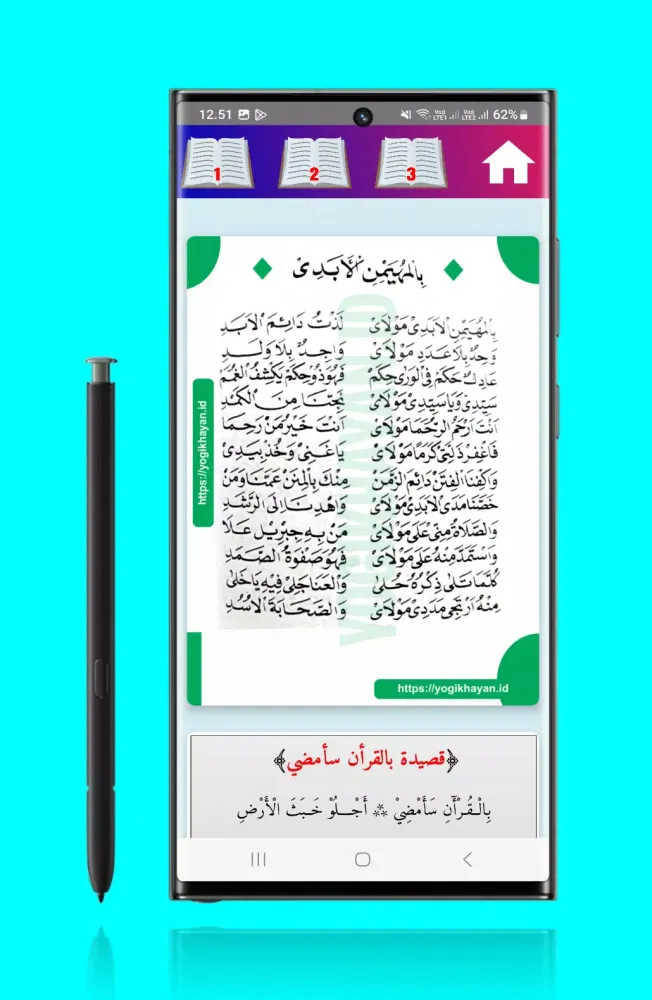 12.51 Vo) LTE1 Vo) LTE2 62%
1 2 3
بِالْمُهَيْمِنِ الْأَبَدِىْ
بِالْمُهَيْمِنِ الْاَبَدِىْ مَوْلَاىْ لَذْتُ دَائِمَ الْاَبَدِ
وَحِدٌ بِلَا عَدَدٍ مَوْلَاىْ وَاحِدٌ بِلَا وَلَدِ
عَادِلٌ حَكَمْ فِى الْوَرٰى حِكَمْ فَهُوَ ذُوْ حِكَمْ يَكْشِفُ الْغُمَمْ
سَيِّدِىْ وَيَا سَيِّدِىْ مَوْلَاىْ نَجِّنَا مِنَ الْكَمَدِ
اَنْتَ اَرْحَمُ الرُّحَمَا مَوْلَاىْ اَنْتَ خَيْرُ مَنْ رَحِمَا
فَاغْفِرْ ذَلَّتِىْ كَرَمًا مَوْلَاىْ يَاغَنِىْ وَخُذْ بِيَدِىْ
وَاكْفِنَا الْفِتَنْ دَائِمَ الزَّمَنْ مِنْكَ بِالْمِنَنْ عَمِّنَا وَمَنْ
خَصَّنَا مَدَى الْاَبَدِىْ مَوْلَاىْ وَاهْدِنَا اِلَى الرَّشَدِ
وَالصَّلَاةُ مِنِّىْ عَلَى مَوْلَاىْ مَنْ بِهِ جِبْرِيْلُ عَلَا
وَاسْتَمَدَّ مِنْهُ عَلَى مَوْلَاىْ فَهُوَ صَفْوَةُ الصَّمَدِ
كُلَّمَا تَلٰى ذِكْرُهُ حُلٰى وَالْعَنَا جَلِىْ فِيْهِ يَاخَلِىْ
مِنْهُ اَرْتَجِىْ مَدَدِىْ مَوْلَاىْ وَالصَّحَابَةَ الْاُسُدِ
https://yogikhayan.id
YOGIKHAYAN.ID
https://yogikhayan.id
﴿قصيدة بالقرأن سأمضي﴾
بِالْقُرْآنِ سَأَمْضِيْ ** أَجْلُوْ خَبَثَ الْأَرْضِ